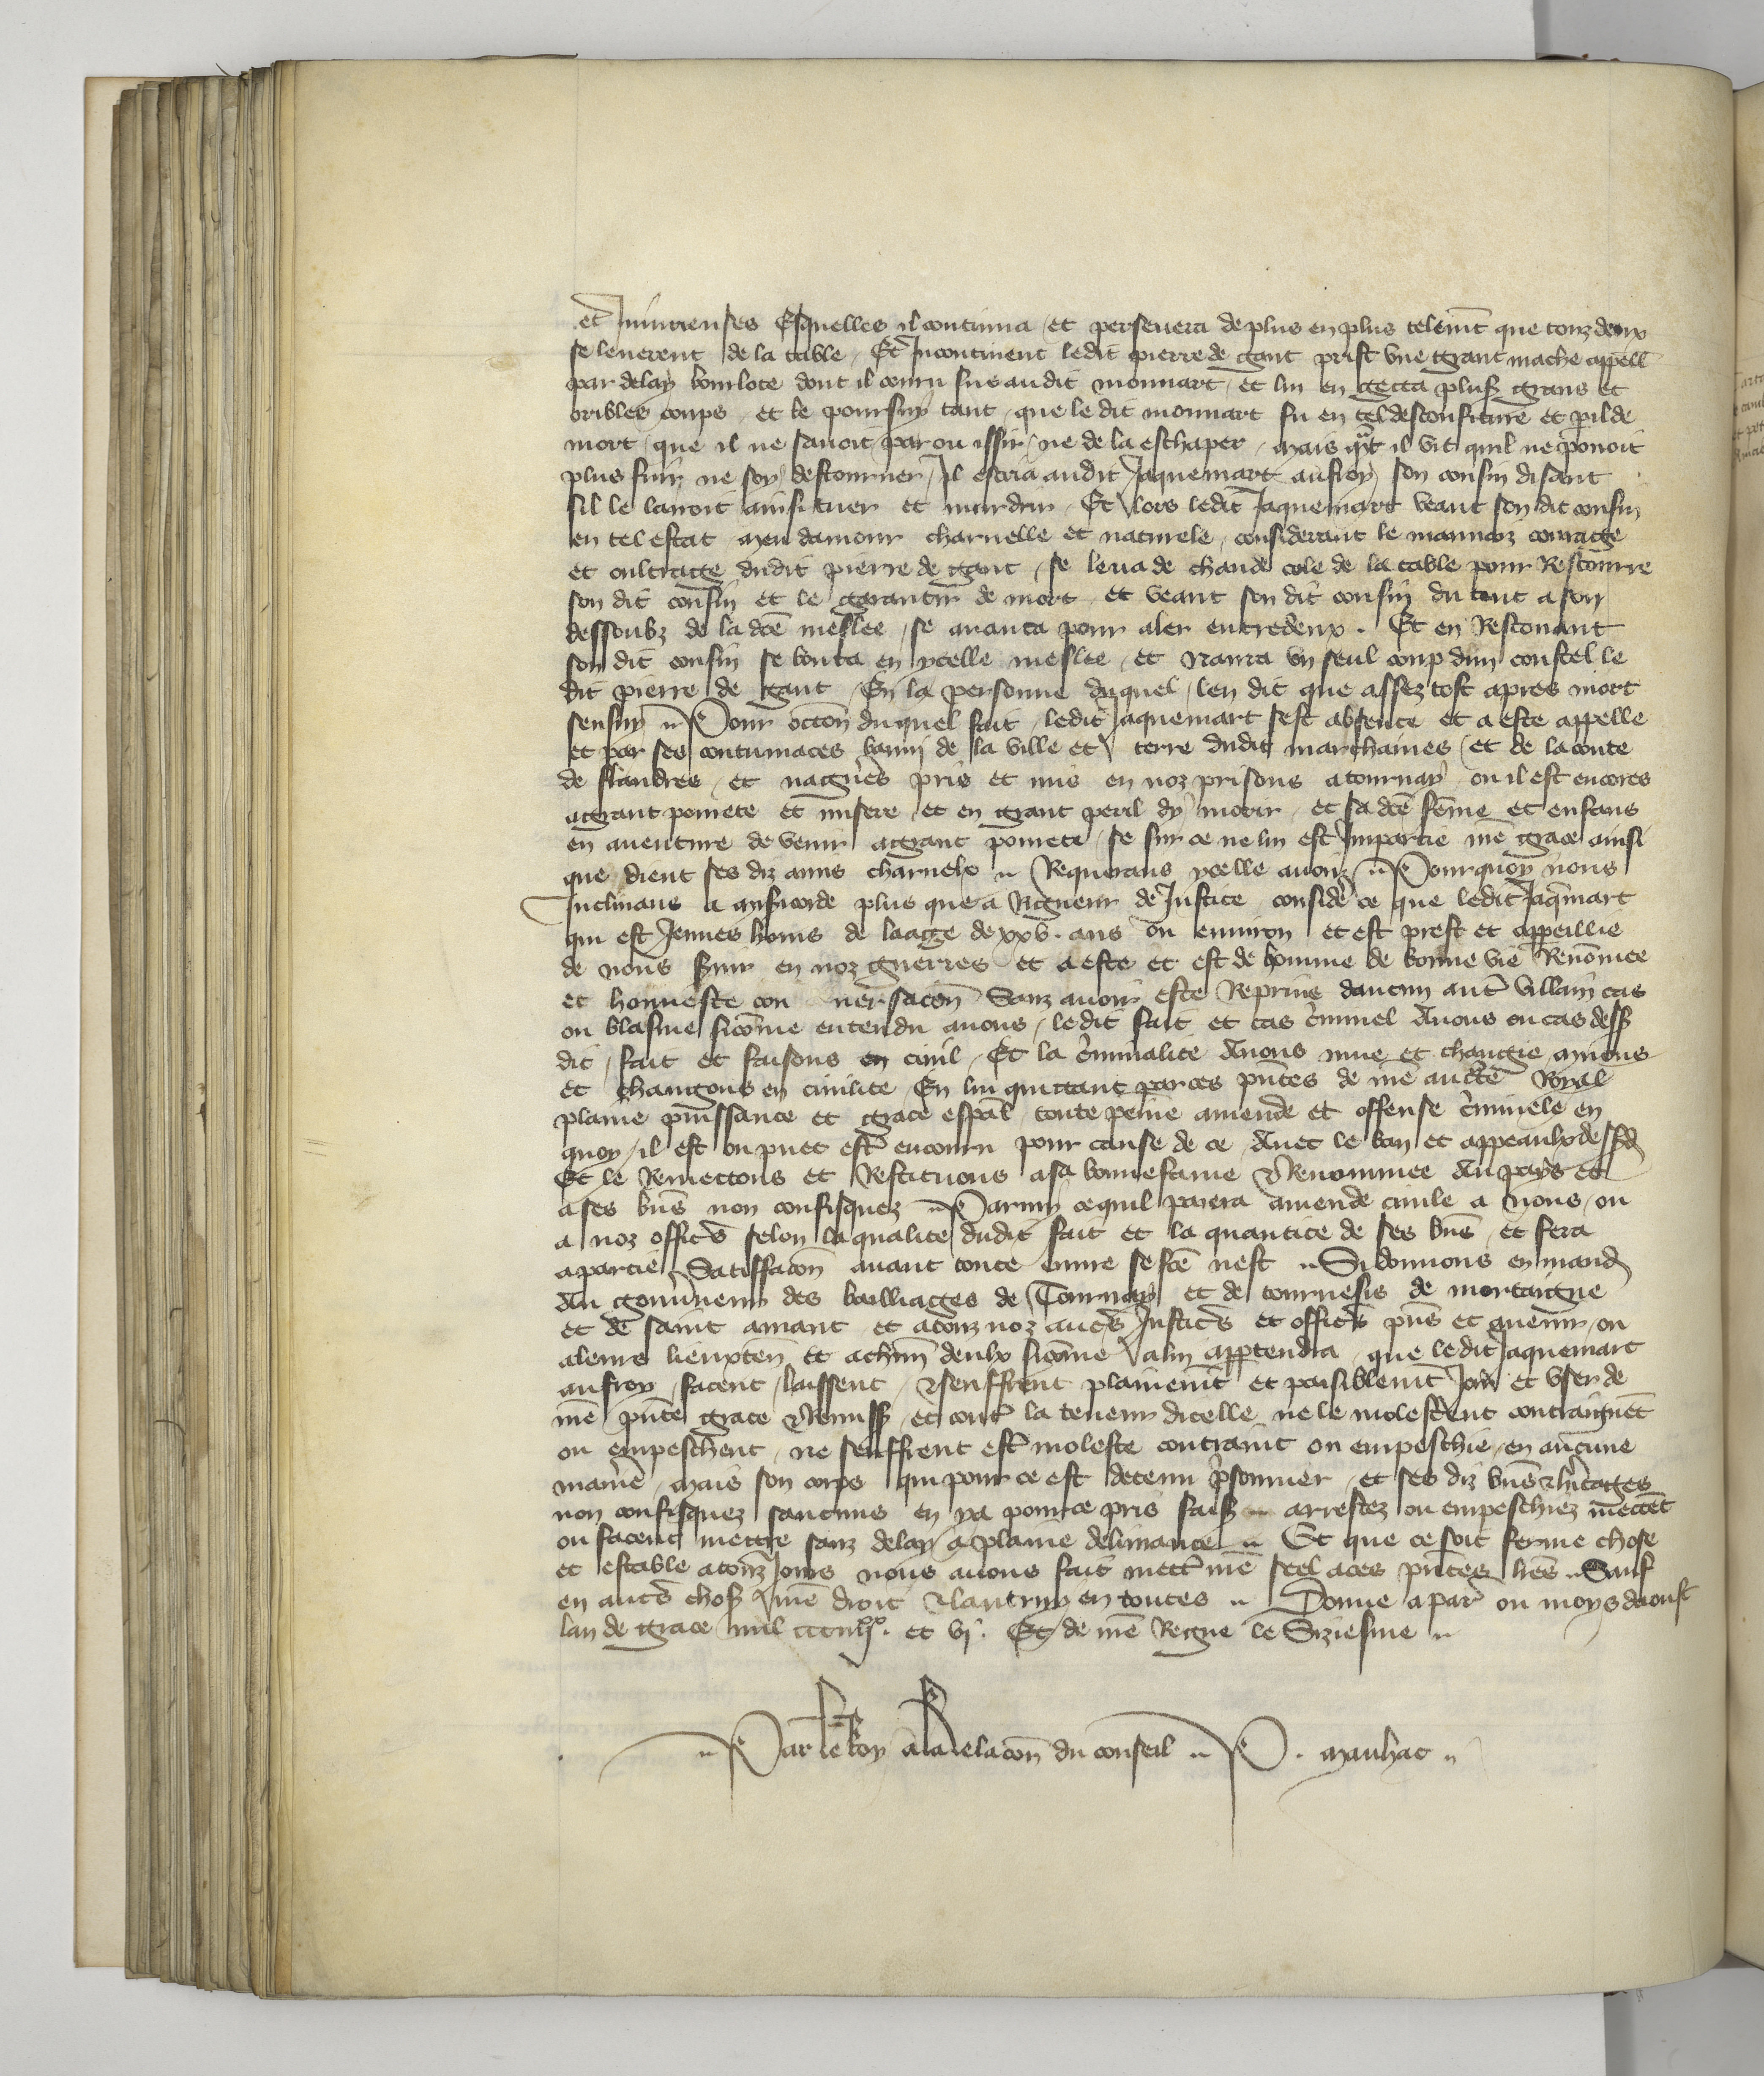 et Iniurieuses Esquelles il continua et perseuera de plus en plus telemt que touz deux
se leuerent de la table Et Incontinent ledit pierre de gant prist vne grant mache appell
par delay boulote dont il couru sus audit monnart et lui en getta pluss grans et
oribles coups et le poursuy tant que le dit monnart fu en tel desconfiture et pil de
mort que il ne sauoit par ou issir ne de la eschaper mais qnt il vit quil ne pouoit
plus fuir ne soy destourner Il escria audit Jaquemart aufroy son cousin disant
sil le lairoit ainsi tuer et murdrir Et lors ledit Jaquemart veant son dit cousin
en tel estat meu damour charnelle et naturele considerant le mauuaiz courage
et oultrage dudit pierre de gant se leua de chaude cole de la table pour Rescourre
son dit cousin et le garantir de mort et veant son dit cousin du tout a son
dessoubz de la dce meslee se auanca pour aler entredeux . Et en Rescouant
son dit cousin se bouta en ycelle meslee et naura vn seul coup dun coustel le
dit pierre de gant En la personne duquel len dit que assez tost apres mort
sensuy Pour occon duquel fait ledit Jaquemart sest absente et a este appelle
et par ses contumaces banni de la ville et terre dudit marchaines et de la conte
de flandres et nagueres pris et mis en noz prisons a tournay ou il est encores
a grant pourete et misere et en grant peril dy morir et sa dce feme et enfans
en auenture de venir a grant pourete se sur ce ne lui est Impartie nre grace ainsi
que dient ses diz amis charnelx Requerans ycelle auoir Pourquoy nous
Inclinans a misicorde plus que a Rigueur de Justice considere ce que ledit Jaqmart
qui est Jeunes homs de laage de xxv . ans ou enuiron et est prest et appeillie
de nous seruir en noz guerres et a este et est de homme de bonne vie Renomee
et honneste con uersacon Sanz auoir este Reprins daucun autre villain cas
ou blasme sicomme entendu auons ledit fait et cas criminel Auons ou cas dess
dit fait et faisons en ciuil Et la criminalite Auons mue et changie muons
et changons en ciuilite En lui quittant par ces pntes de nre aucte Royal
plaine puissance et grace espal toute peine amende et offense criminele en
quoy il est ou puet estre encouru pour cause de ce Auec le ban et appeaulx dessd
Et le Remettons et Restituons a sa bonne fame & Renommee Au pays et
a ses biens non confisquez Parmy ce quil paiera amende ciuile a nous ou
a noz officiers selon la qualite dudit fait et la quantite de ses biens et fera
a partie Satisfacon auant toute euure se fce nest Si donnons en mand
Au gouuneur des bailliages de Tournay et de tournesis de mortaigne
et de saint amant et a touz noz autres Justiciers et officiers pns et auenir ou
a leurs lieuxten et a chun deulx sicomme a lui apptendra que ledit Jaquemart
aufroy facent laissent & seuffrent plainemt et paisiblemt Joir et vser de
nre pnte grace & Remiss et contre la teneur dicelle ne le molestent contraignet
ou empeschent ne seuffrent estre moleste contraint ou empeschie en aucune
maniere mais son corps qui pour ce est detenu prisonnier et ses diz biens & heritages
non confisquez saucuns en ya pour ce pris saisiz arrestez ou empeschiez mettet
ou facent mettre sanz delay a plaine deliurance Et que ce soit ferme chose
et estable a touz Jours nous auons fait mettre nre seel a ces pntes lres Sauf
en autres choses nre droit & lautruy en toutes Donne a paris ou moys daoust
lan de grace mil ccciiijxx. et vj. Et de nre Regne le Siziesme
Par le Roy a la Relacon du conseil P. manhac